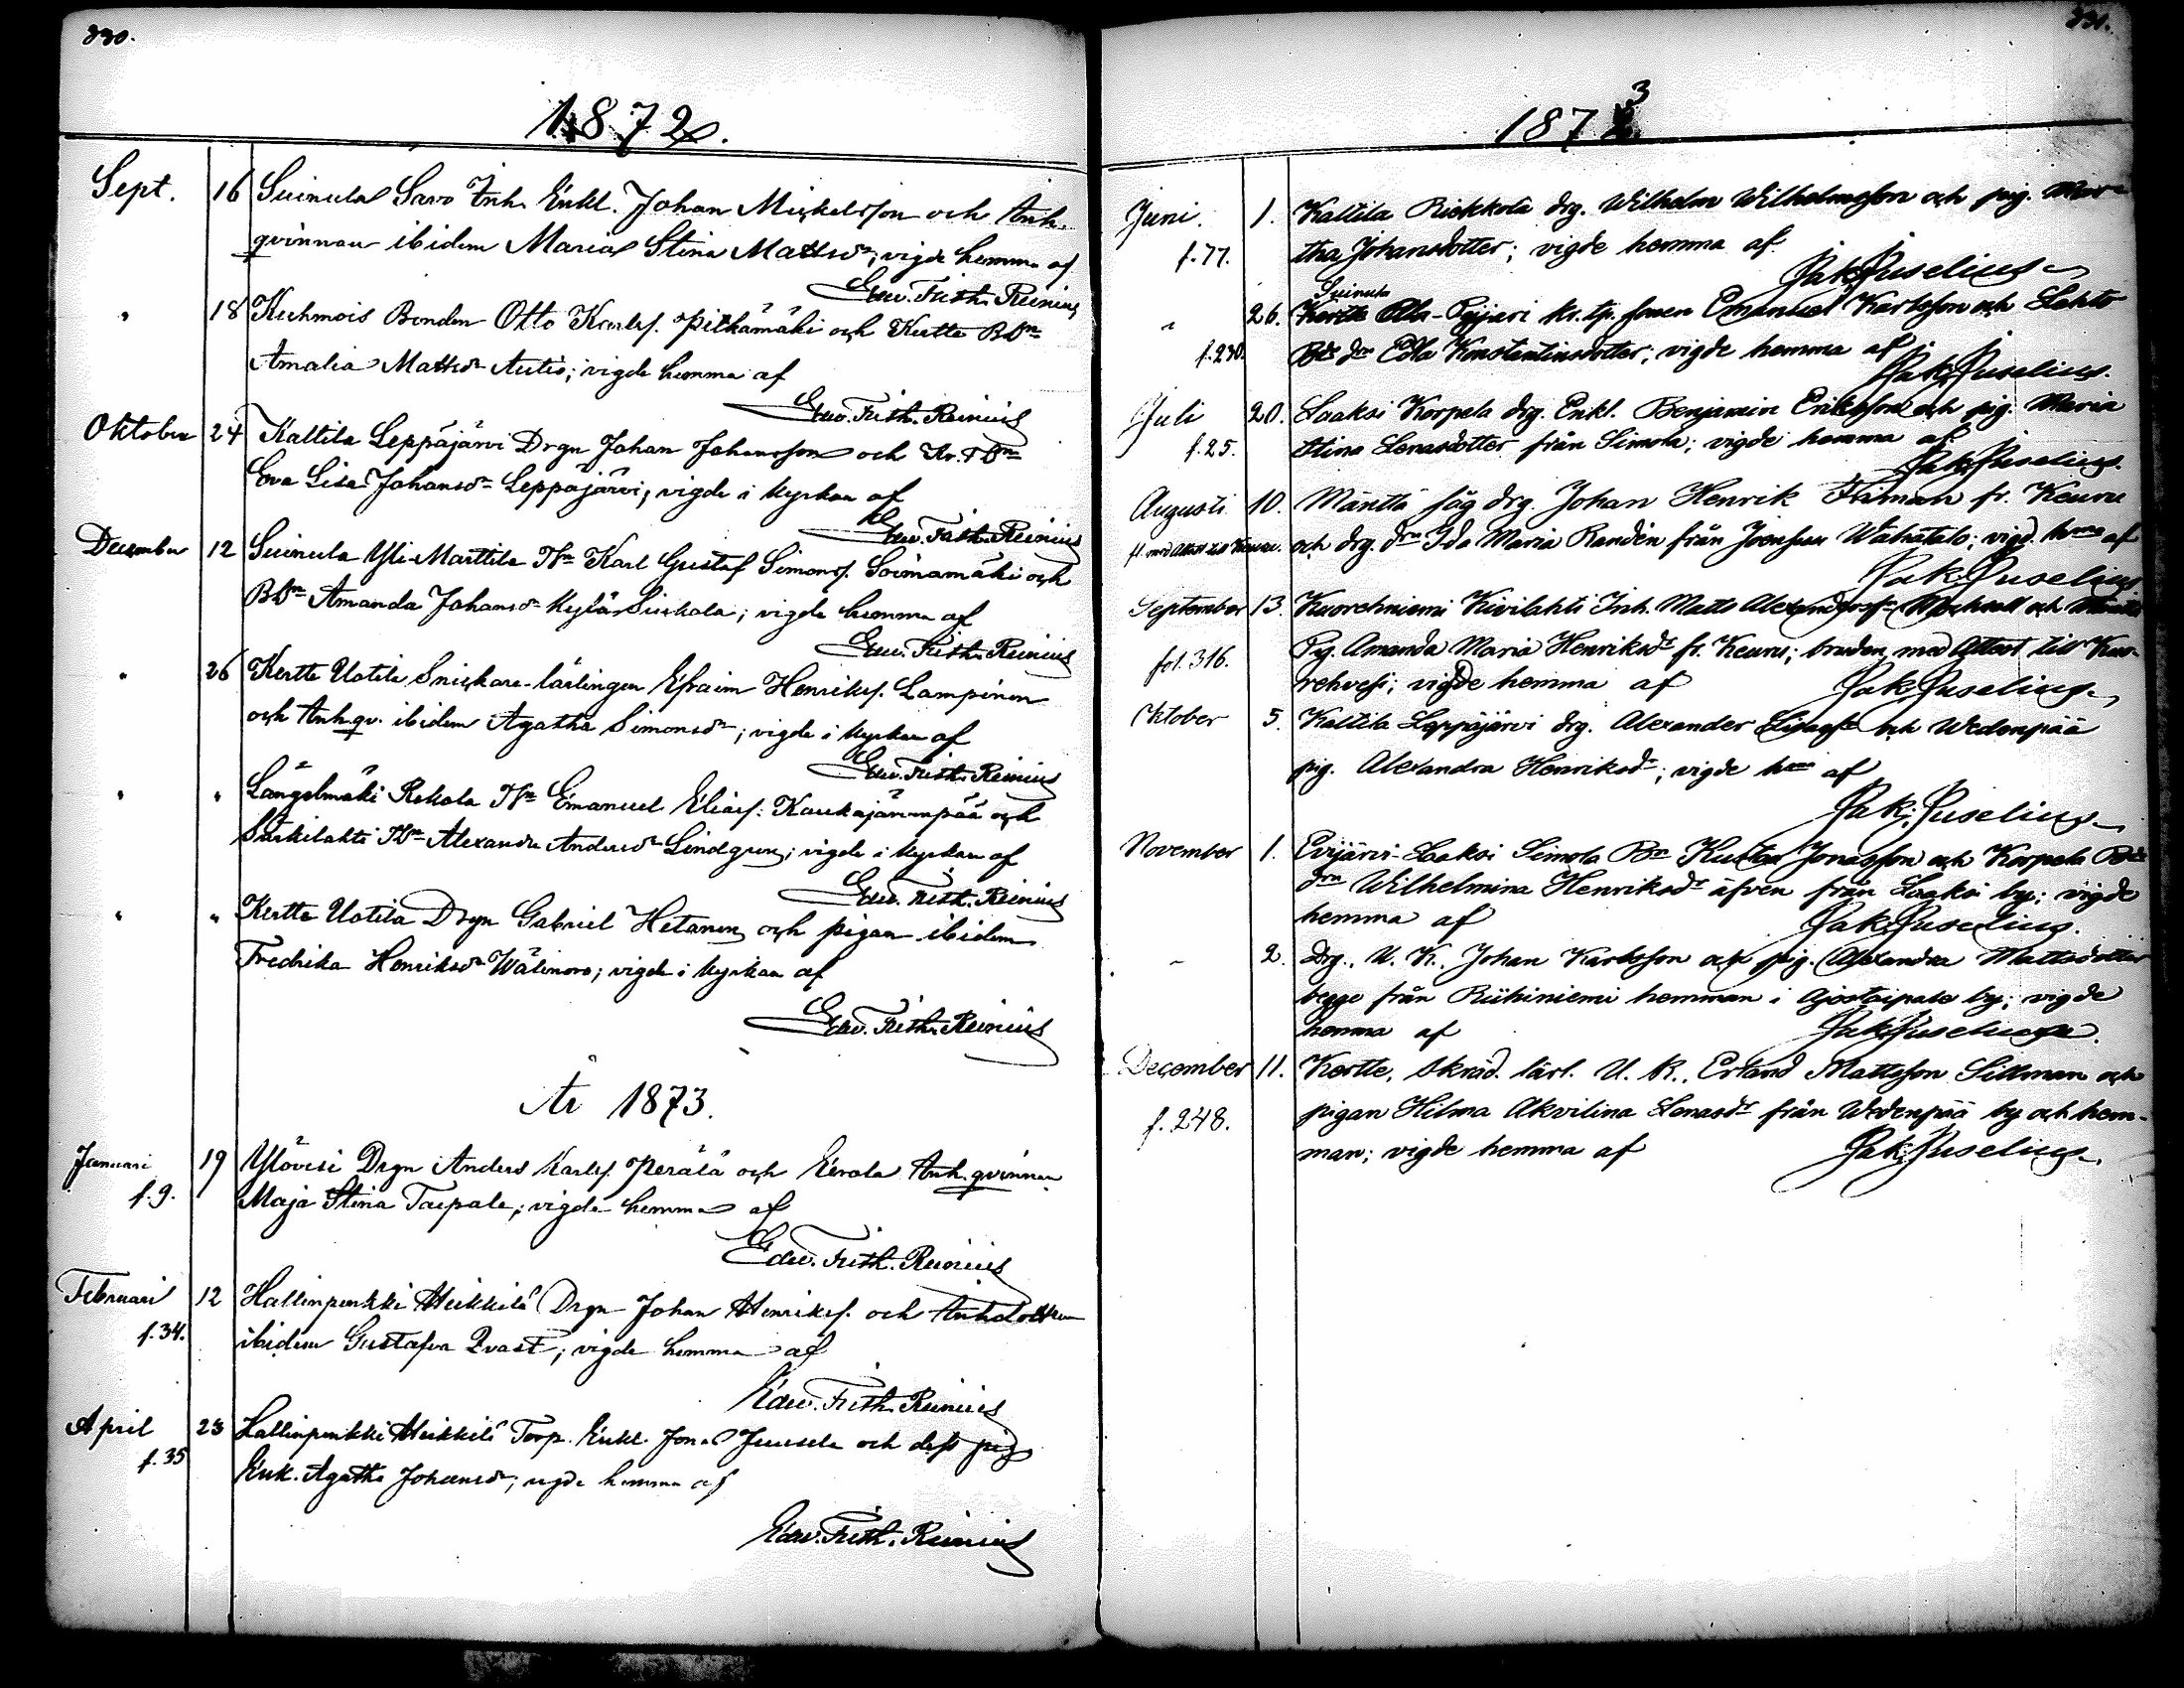 330.
1872.
Sept. 16 Suinula Savo Inh. Enkl. Johan Mickelsson och Inh.
qvinnan ibidem Maria Stina Mattsdr; vigde hemma af
Edw. Frith. Reinius
" 18 Kuhmois Bonden Otto Pitkämäki och Kertte BDn
Amalia Mattsdr Autio; vigde hemma af
Edw. Frith. Reinius
Oktober 24 Kaltila Leppäjärvi Drgn Johan Johansson och
Eva Lisa Johansdr Leppäjärvi; vigde i kyrkan af
Edw. Frith. Reinius
December 12 Suinula Yli-Marttila Karl Gustaf Simonsf. Soimamäki och
BDn Amanda Johansdr Kylä Siukola; vigde hemma af
Edw. Frith. Reinius
" 26 Kertte Uotila Snickare-lärlingen Efraim Henriksf. Lampinen
och Inh.qv. ibidem Agatha Simonsdr; vigde i kyrkan af
Edw. Frith. Reinius
" " Längelmäki Rekola Emanuel Eliasf. Kaukajärvenpää och
Särkilahti Alexandra Andersdr Lindgren; vigde i kyrkan af
Edw. Frith. Reinius
" " Kertte Uotila Drgn Gabriel Hetanen och pigan ibidem
Fredrika Henriksdr Wälimoro; vigde i kyrkan af
Edw. Frith. Reinius
År 1873.
Januari 19 Ylövesi Drgn Anders Karlsf. Perälä och Eerola Inh. qvinnan
f. 9. Maja Stina Taipale; vigde hemma af
Edw. Frith. Reinius
Februari 12 Hallinpenkki Heikkilä Drgn Johan Henriksf. och Inhdottren
f. 34. ibidem Gustafva Qvast; vigde hemma af
Edw. Frith. Reinius
April 23 Hallinpenkki Heikkilä Torp. Enkl. Jonas Juusela och dess pig
f. 35 Enk. Agatha Johansdr; vigde hemma af
Edw. Frith. Reinius
331.
1873
Juni. 1. Kaltila Riekkola drg. Wilhelm Wilhelmsson och pig. Mar-
f. 77. tha Johansdotter; vigde hemma af
Jak. Juselius
Suinula
" 26. Pyjäri kr. tp. sonen Emanuel Karlsson och Lahto
f. 230. Bds drn Edla Konstantinsdotter; vigde hemma af
Jak. Juselius.
Juli 20. Laaksi Korpela drg. Enkl. Benjamin Eriksson och pig. Maria
f. 25. Stina Lenasdotter från Simola; vigde hemma af
Jak. Juselius.
Augusti 10. Mänttä såg drg. Johan Henrik fr. Keuru
fl. med Attest till Keuru. och drg. drn Ida Maria Randén från Joensuu Wähätalo; vigd. hma af
Jak. Juselius
September 13. Kuorehniemi Kivilahti Inh. Matts och
fol. 316. Pg. Amanda Maria Henriksdr fr. Keuru; bruden med Attest till Kuo-
rehvesi; vigde hemma af Jak. Juselius.
Oktober 5. Kaltila Leppäjärvi drg. Alexander och Wedenpää
pig. Alexandra Henriksdr; vigde hma af
Jak. Juselius.
November 1. Evijärvi-Laaksi Simola Bn Kustaa Jonasson och Korpela Bds
drn Wilhelmina Henriksdr äfven från Laaksi by; vigde
hemma af Jak. Juselius.
" 2. Drg. U. K. Johan Karlsson och pig. Alexandra Mattsdotter
begge från Riihiniemi hemman i Ajostaipale by; vigde
hemma af Jak. Juselius.
December 11. Kertte, Skräd. lärl. U. K. Erland Mattsson Sillman och
f. 248. pigan Hilma Akvilina Lenasdr från Wedenpää by och hem-
man; vigde hemma af Jak. Juselius.